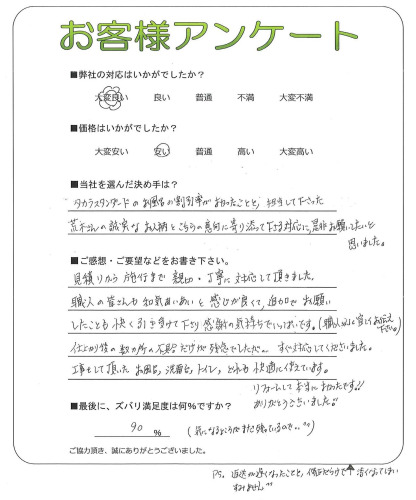 お客様アンケート
■弊社の対応はいかがでしたか？
大変良い 良い 普通 不満 大変不満
■価格はいかがでしたか？
大変安い 安い 普通 高い 大変高い
■当社を選んだ決め手は？
タカラスタンダードのお風呂の割引率が良かったことと、担当して下さった
荒木さんの誠実なお人柄とこちらの意向に寄り添って下さる対応に、是非お願いしたいと
思いました。
■ご感想・ご要望などをお書き下さい。
見積りから施行まで親切・丁寧に対応して頂きました。
職人の皆さんも和気あいあいと感じが良くて、追加でお願い
したことも快く引き受けて下さり感謝の気持ちでいっぱいです。(職人さんに宜しくお伝え
下さい。)
仕上り後の数ヵ所の不具合だけが残念でしたが、すぐ対応してくださいました。
工事をして頂いたお風呂、洗面台、トイレ、どれも快適に使えています。
リフォームして本当に良かったです!!
ありがとうございました!!
■最後に、ズバリ満足度は何%ですか？
90 % (気になるところがまだ残っているので。。)
ご協力頂き、誠にありがとうございました。
PS. 返送が遅くなったことと、修正だらけで汚くなってしまい
すみません。